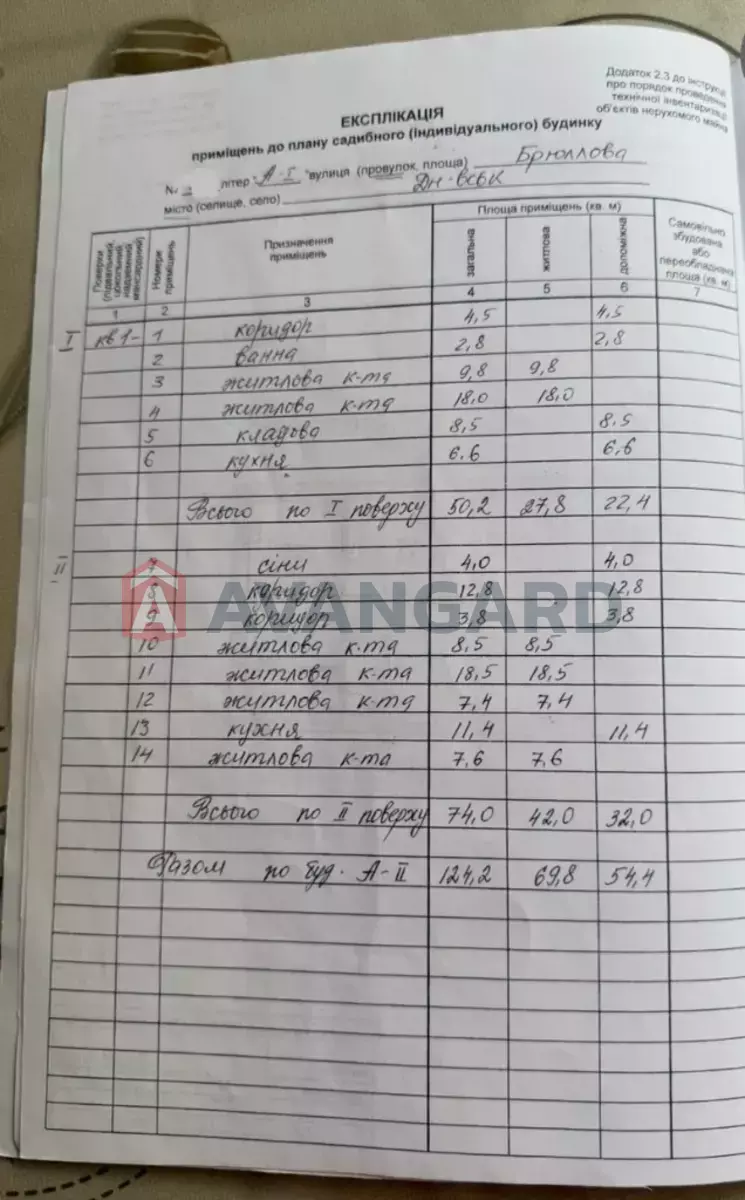 Додаток 2.3 до інструкції
про порядок проведення
технічної інвентаризації
об'єктів нерухомого майна
ЕКСПЛІКАЦІЯ
приміщень до плану садибного (індивідуального) будинку
№ літер "А-І" вулиця (провулок, площа) Брюллова
місто (селище, село) Дн-вськ
Поверхи (підвальний, цокольний, надземний, мансардний) Номери приміщень Призначення приміщень Площа приміщень (кв. м) Самовільно збудована або переобладнана площа (кв. м)
загальна житлова допоміжна
1 2 3 4 5 6 7
І кв 1- 1 коридор 4,5 4,5
2 ванна 2,8 2,8
3 житлова к-та 9,8 9,8
4 житлова к-та 18,0 18,0
5 кладова 8,5 8,5
6 кухня 6,6 6,6
Всього по І поверху 50,2 27,8 22,4
ІІ 7 сіни 4,0 4,0
8 коридор 12,8 12,8
9 коридор 3,8 3,8
AVANGARD
10 житлова к-та 8,5 8,5
11 житлова к-та 18,5 18,5
12 житлова к-та 7,4 7,4
13 кухня 11,4 11,4
14 житлова к-та 7,6 7,6
Всього по ІІ поверху 74,0 42,0 32,0
Разом по буд. А-ІІ 124,2 69,8 54,4